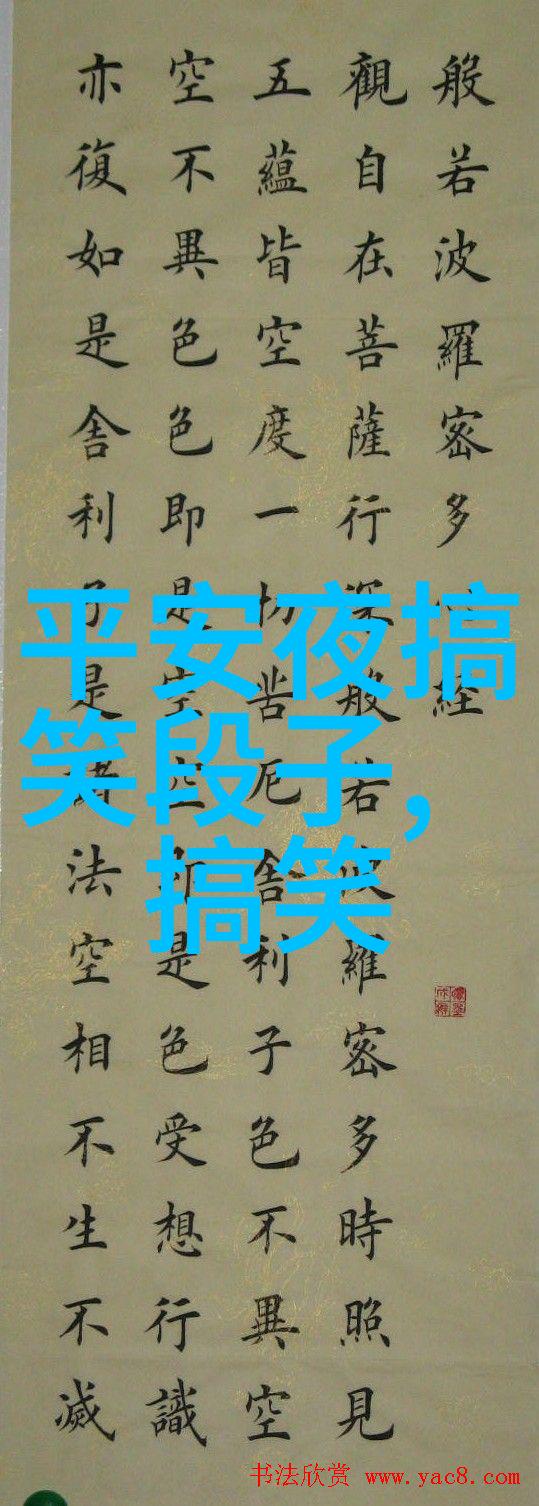 般若波羅密多心經
觀自在菩薩行深般若波羅密多時照見
五蘊皆空度一切苦厄舍利子色不異空
空不異色色即是空空即是色受想行識
亦復如是舍利子是諸法空相不生不滅
平安夜搞
笑段子,
搞笑
书法欣赏 www.yac8.com